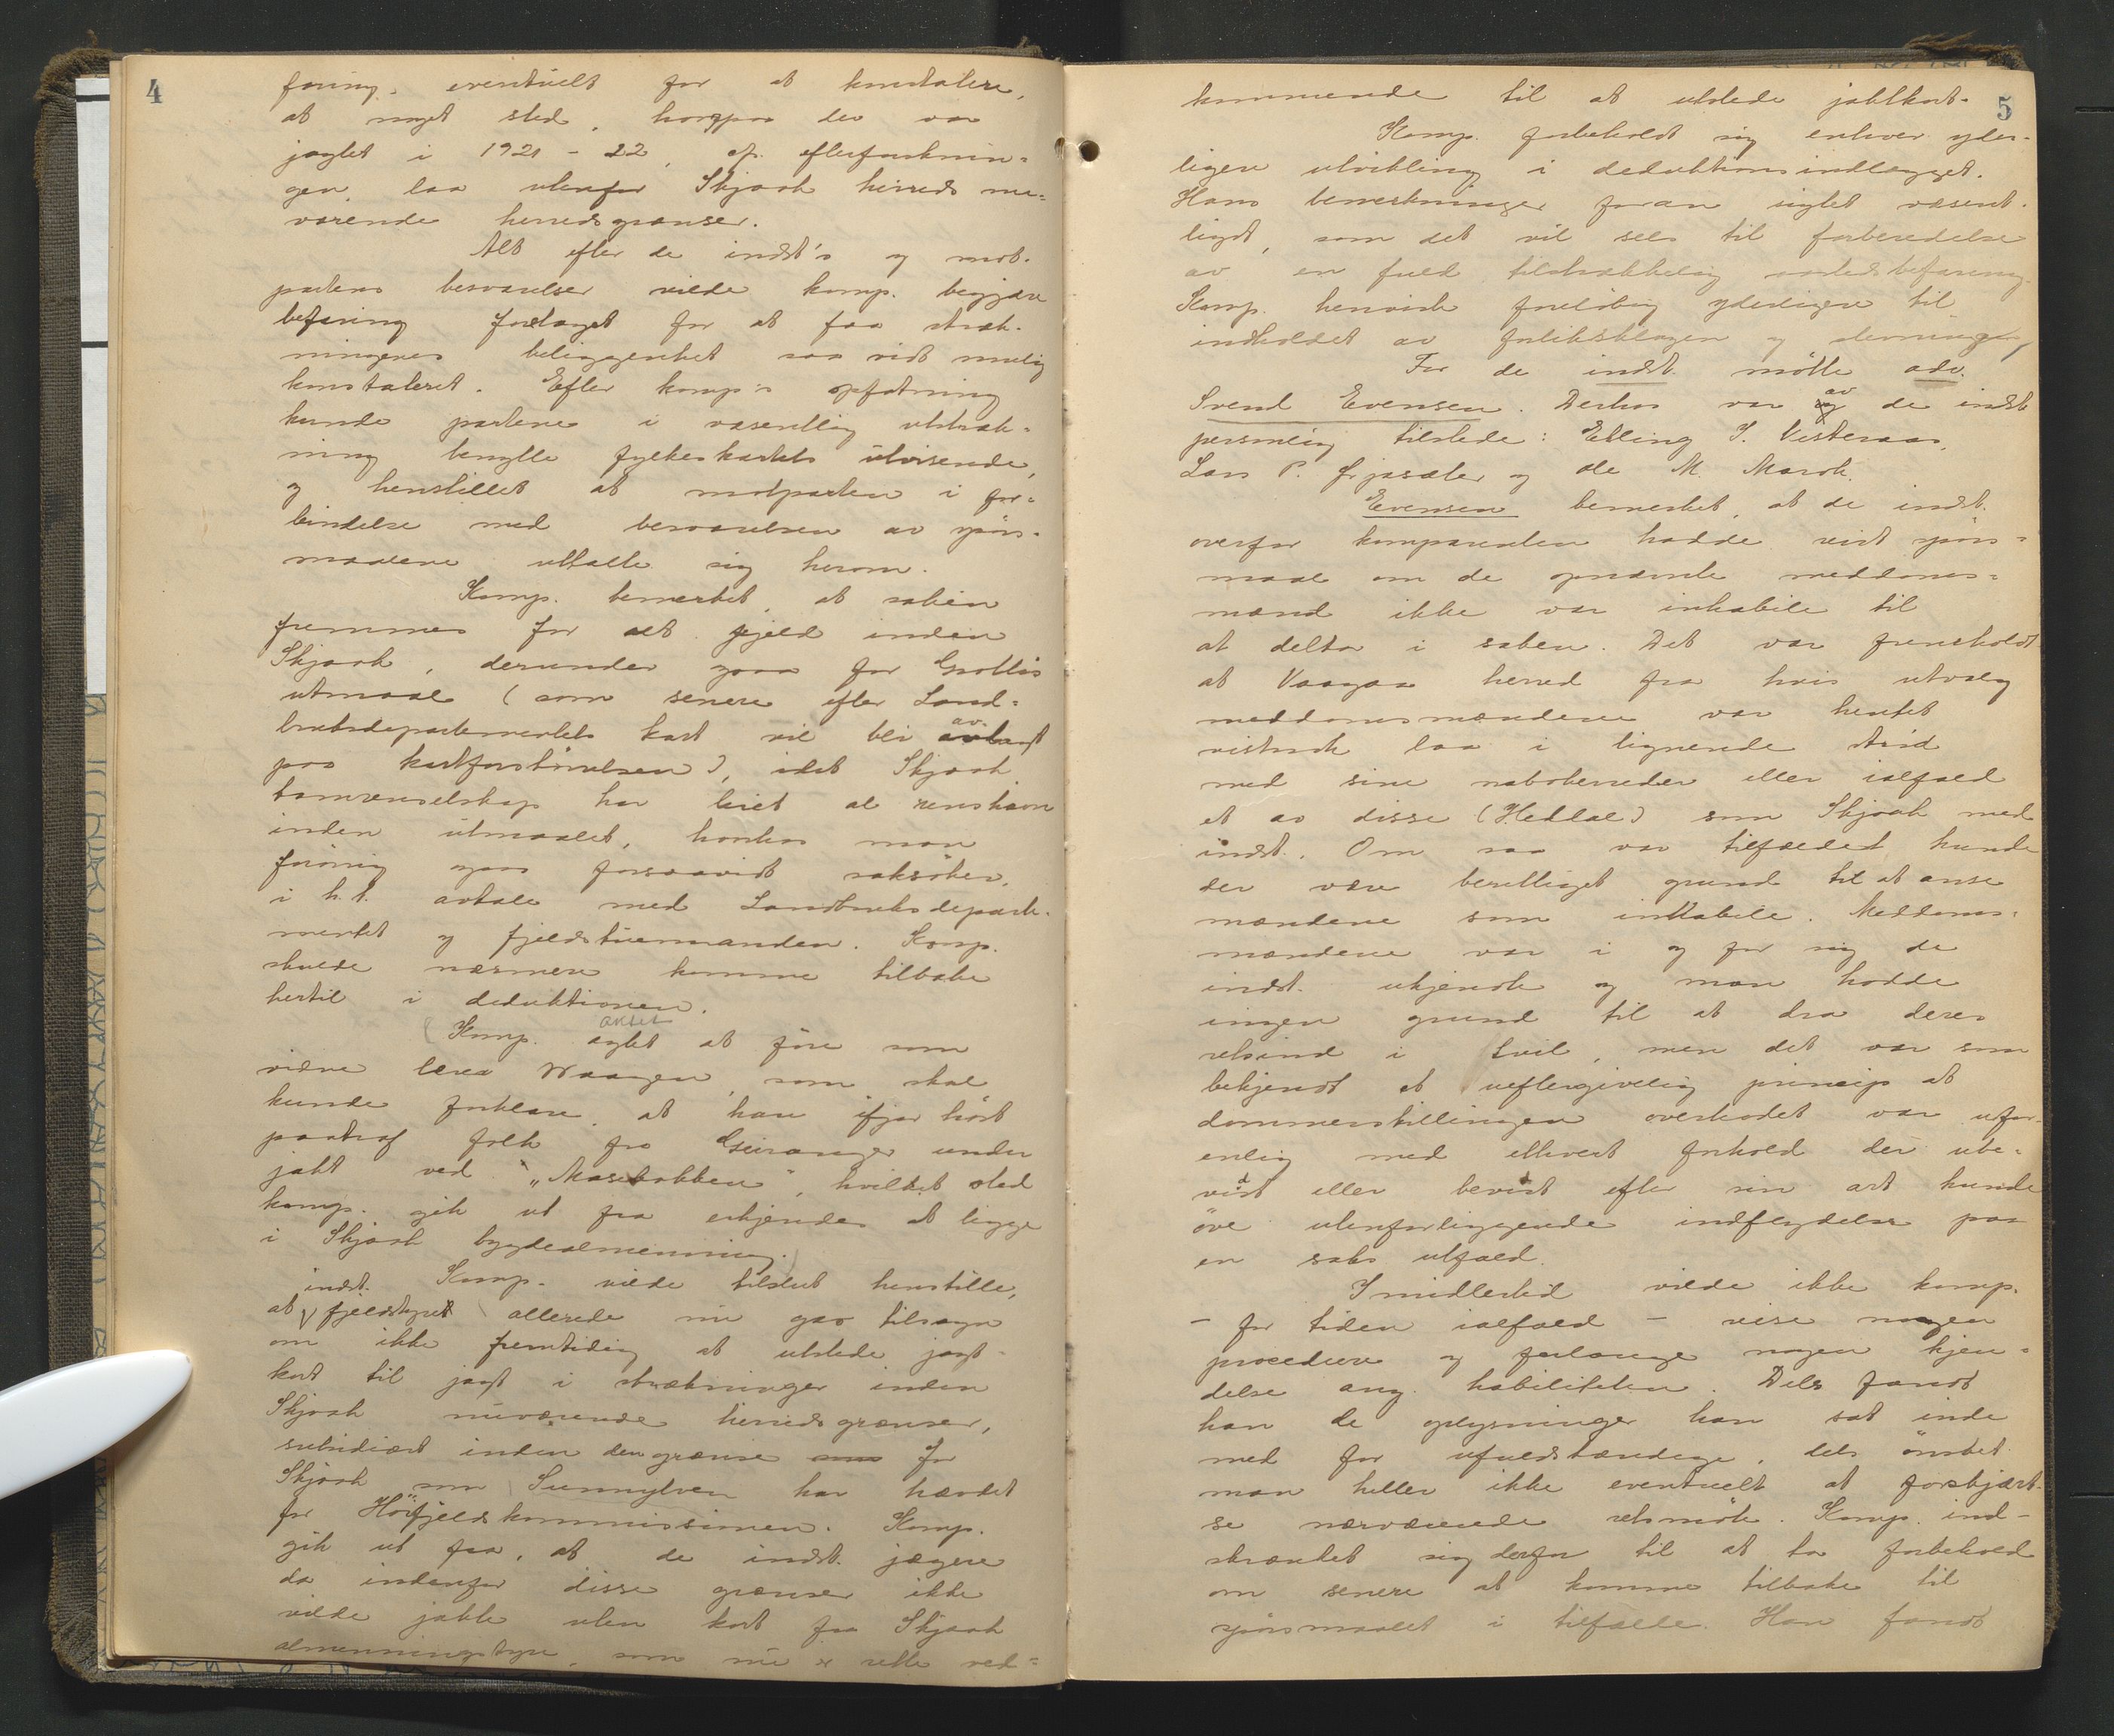 4
faring, eventuelt for at konstatere,
at noget sted, hvorpaa der var
jagtet i 1921 - 22, cfr. efterforsknin=
gen, laa utenfor Skjaak herreds nu=
værende herredsgrænser.
Alt efter de indst's og mot-
partens besvarelser vilde komp. begjære
befaring foretaget for at faa stræk-
ningenes beliggenhet saa vidt mulig
konstateret. Efter komp's opfatning
kunde partene i væsentlig utstræk-
ning benytte fylkeskartets utvisende,
og henstillet at motparten i for=
bindelse med besvarelsen av spörs-
maalene uttalte sig herom.
Komp. bemerket, at saken
fremmes for alt fjeld inden
Skjaak, derunder ogsaa for Grotlis
utmaal (som senere efter Land=
bruksdepartementets kart vil bli av-
paa kartforstörrelsen), idet Skjaak
tamrenselskap har leiet al renshavn
inden utmaalet, hvorhos man
forövrig ogsaa forsaavidt saksöker,
i h.t. avtale med Landbruksdeparte-
mentet og fjeldstuemanden. Komp.
skulde nærmere komme tilbake
hertil i deduktionen.
(Komp. agtet aktet at före som
vidne lærer Waagen, som skal
kunde forklare, at han ifjor höst
paatraf folk fra Geiranger under
jakt ved "Masekokken", hvilket sted
komp. gik ut fra erkjendes at ligge
i Skjaak bygdealmenning.)
Komp. vilde tilslut henstille,
at indst. fjeldstyret allerede nu gav tilsagn
om ikke fremtidig at utstede jagt-
kort til jagt i strækninger inden
Skjaak nuværende herredsgrænser,
subsidiært inden den grænse for
Skjaak som Sunnylven har hævdet
for Höifjeldskommissionen. Komp.
gik ut fra, at de indst. jægere
da indenfor disse grænser ikke
vilde jakte uten kort fra Skjaak
almenningstyre, som nu er rette ved=
5
kommende til at utstede jaktkort.
Komp. forbeholdt sig enhver yder-
ligere utvikling i deduktionsindlægget.
Hans bemerkninger foran sigtet væsent-
ligst, som det vil sees til forberedelse
av en fuld tilstrækkelig aastedsbefaring.
Komp. henviste foreløbig yderligere til
indholdet av forliksklagen og stevningen,
For de indst. mötte adv.
Svend Evensen. Derhos var av de indst
personlig tilstede: Elling J. Vesteraas,
Lars P. Grjasæter og Ole M. Marok.
Evensen bemerket, at de indst.
overfor komparenten hadde reist spörs=
maal om de opnævnte meddoms=
mænd ikke var inhabile til
at delta i saken. Det var fremholdt
at Vaagaa herred fra hvis utvalg
meddomsmændene var hentet
vistnok laa i lignende strid
med sine naboherreder eller ialfald
et av disse (Heddal) som Skjaak med
indst. Om saa var tilfældet kunde
der være berettiget grund til at anse
mændene som inhabile. Meddoms=
mændene var i og for sig de
indst. ukjendte og man hadde
ingen grund til at dra deres
retsind i tvil, men det var som
bekjendt et ueftergivelig princip at
dommerstillingen overhodet var ufor-
enlig med ethvert forhold der ube=
vidst eller bevist efter sin art kunde
öve utenforliggende indflydelse paa
en saks utfald.
Imidlertid vilde ikke komp.
- for tiden ialfald - reise nogen
procedure og forlange nogen kjen-
delse ang. habiliteten. Dels fandt
han de oplysninger han sat inde
med for ufuldstændige, dels önsket
man heller ikke eventuelt at forskjært-
se nærværende retsmöte. Komp. ind-
skrænket sig derfor til at ta forbehold
om senere at komme tilbake til
spörsmaalet i tilfælle. Han fandt